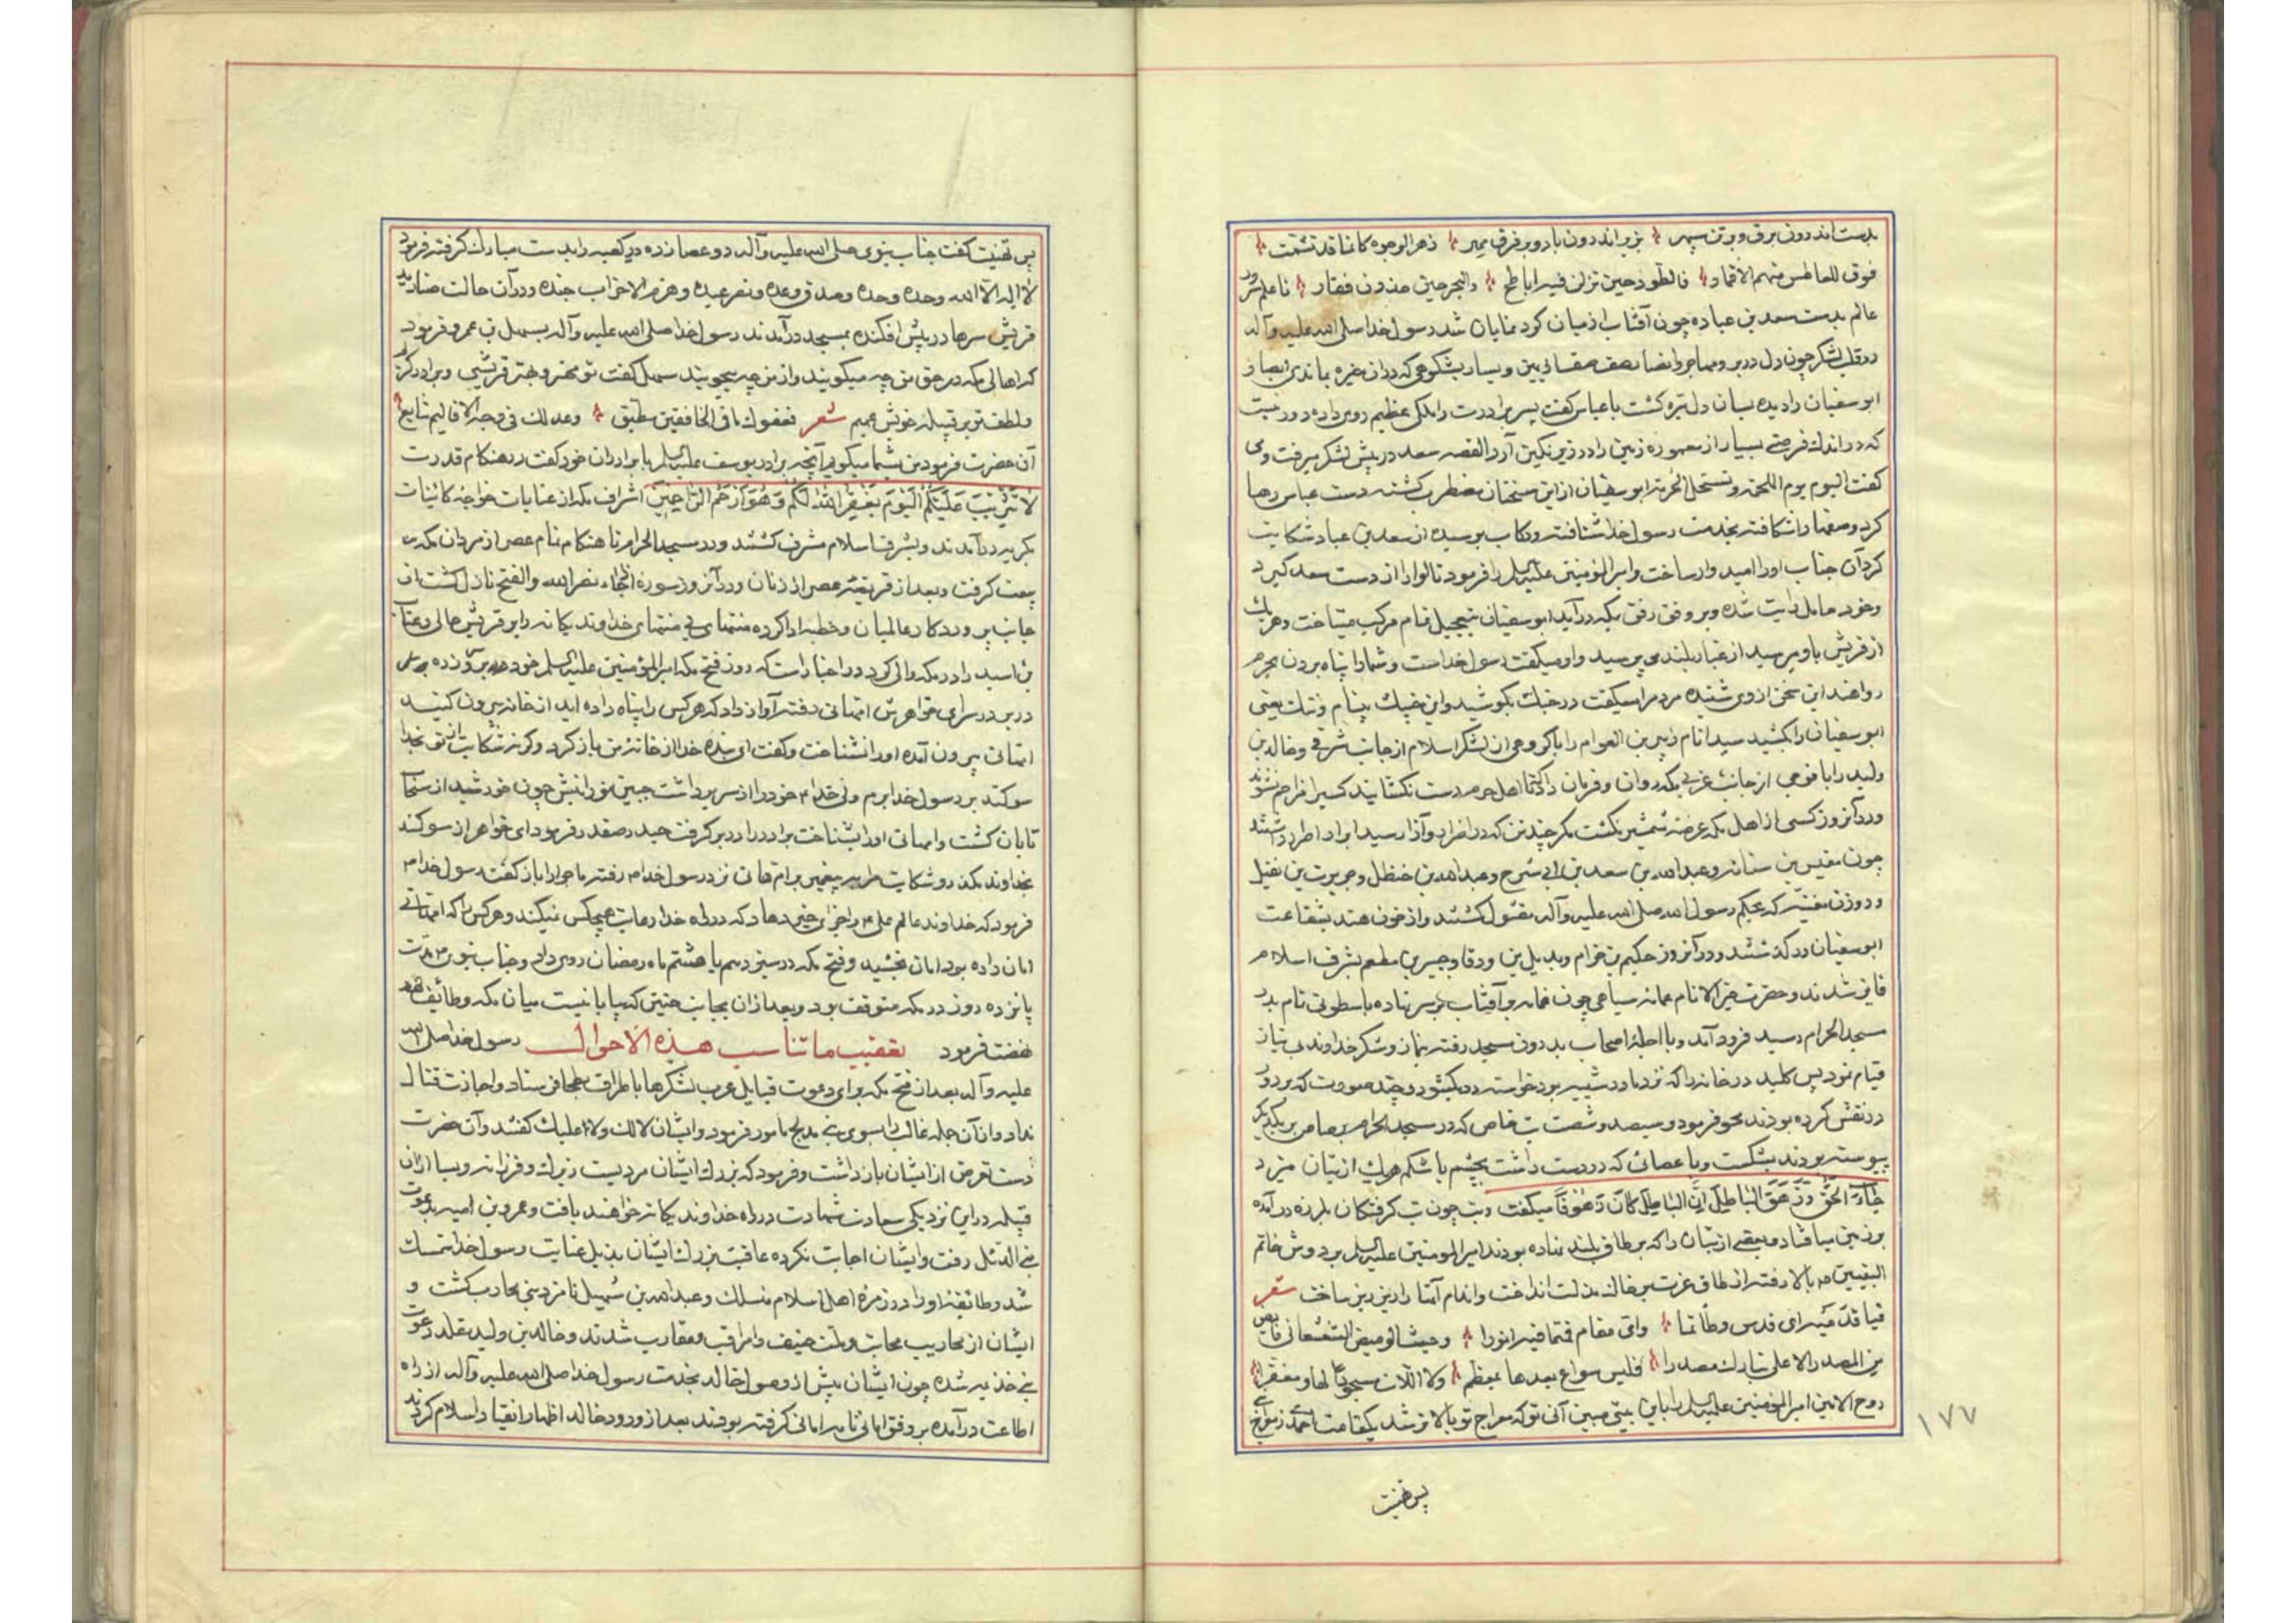 بدست اندرون برق و برتن سپهر بزیر اندرون باد و بر فرق مهر زهر الوجوه کانما قد تشمت
فوق للعاطس منهم الاقمار فالطود حین تزلزن فیه اباطح والبحر حین فقار تا علم سرور
عالم بدست سعد بن عباده چون آفتاب از میان کرد نمایان شد رسول خدا صلی الله علیه وآله
در قلب لشکر چون دل در بر و مهاجر و انصار بصف یمین و یسار بشکوهی که در آن خیره بماندی ابصار
ابوسفیان را دیده بسان دل تیره کشت با عباس کفت پسر برادرت را ملکی عظیم روی داده دور نیست
که در اندك فرصتی بسیار از معموره زمین را در زیر نکین آرد القصه سعد در پیش لشکر میرفت و می
کفت الیوم یوم الملحمه و تستحل الحرمه ابوسفیان از این سخنان مضطرب کشته دست عباس رها
کرد و صفها را شکافته بخدمت رسول خدا شتافته و رکاب بوسیده از سعد بن عباده شکایت
کرد آن جناب او را امیدوار ساخت و امیر المؤمنین علیه السلم را فرمود تا لوا را از دست سعد کیرد
و خود حامل رایت شده و بر وفق رفق بمکه درآید ابوسفیان بتعجیل تمام مرکب میتاخت و هر یك
از قریش باو میرسید از غبار بلند می پرسید و او میکفت رسول خداست و شما را پناه بردن بحرم
رواهند این سخن از وی شنیده مردم را میکفت در جنك بکوشید و این
ابوسفیان را بکشید سید انام زبیر بن العوام را با کروهی از لشکر اسلام از جانب شرقی و خالد بن
ولید را با فوجی از جانب غربی بمکه روان و فرمان داد که تا اهل حرم دست نکشایند کسی مزاحم نشوند
و در آنروز کسی از اهل مکه عرضه شمشیر نکشت مکر چند تن که در اضرار و آزار سید ابرار اصرار داشتند
چون مقیس بن ستانه و عبدالله بن سعد بن ابی سرح و عبدالله بن خنظل و حویرث بن نفیل
و دو زن مغنیه که بحکم رسول الله صلی الله علیه وآله مقتول کشتند و از خون هند بشفاعت
ابوسفیان درکذشتند و در آنروز حکیم بن خزام و بدیل بن ورقا و جبیر بن مطعم بشرف اسلام
فایز شدند و حضرت خیر الانام عمامه سیاهی چون غمام بر آفتاب بر سر نهاده با سطوتی تمام بدر
مسجد الحرام رسید فرود آمد و با اجله اصحاب بدرون مسجد رفته بنماز و شکر خداوند بی نیاز
قیام نمود پس کلید در خانه را که نزد مادر شیبه بود خواسته در بکشود و چند صورت که بر در
در نقش کرده بودند محو فرمود و سیصد و شصت بت خاص که در مسجد الحرام برصاص بر یکدیکر
پیوسته بودند بشکست و با عصائی که در دست داشت بچشم یا شکم هر یك از بتان میزد
جاء الحق و زهق الباطل ان الباطل کان زهوقا میکفت و بت چون تب کرفتکان بلرزه درآمده
بر زمین میافتاد و بعضی از بتان را که بر طاق بلند نهاده بودند امیر المؤمنین علیه السلم بر دوش خاتم
النبیین ص بالا رفته از طاق عزت بر خاك مذلت انداخت و اندام آنها را ریز ریز ساخت شعر
فیا قدمیه ای قدس وطاتما وای مقام قمتما فیه انورا وحیث الومیض الشعشعانی فایض
من المصدر الاعلی تبارك مصدرا فلیس سواع بعدها بمعظم ولا اللات مسجودا لها ومعفرا
روح الامین امیر المؤمنین علیه السلم را باین بیتی مبین آنی تو که معراج تو بالاتر شد یکقامت احمدی ز معراج
١٧٧
پس تهنیت
پس تهنیت کفت جناب نبوی صلی الله علیه وآله دو عصا زده در کعبه را بدست مبارك کرفته فرمود
لا اله الا الله وحده وحده وصدق وعده ونصر عبده وهزم الاحزاب جنده و در آن حالت صنادید
قریش سرها در پیش افکنده بمسجد درآمدند رسول خدا صلی الله علیه وآله بسهیل بن عمرو فرمود
که اهالی مکه در حق من چه میکویند و از من چه میجویند سهیل کفت تو مهتر و بهتر قریشی و برادر کرم
و لطف تو بر قبیله خویش عمیم شعر فعفوك ما فی الخافقین مطبق وعدلك فی وجه الاقالیم شایع
آن حضرت فرمود من بشما میکویم آنچه برادرم یوسف علیه السلم با برادران خود کفت در هنکام قدرت
لا تثریب علیکم الیوم یغفر الله لکم وهو ارحم الراحمین اشراف مکه از عنایات خواجه کائنات
بکریه درآمدند و بشرف اسلام مشرف کشتند و در مسجد الحرام تا هنکام نام عصر از مردان مکه
بیعت کرفت و بعد از فریضه عصر از زنان و در آنروز سوره اذا جاء نصر الله والفتح نازل کشت از
جانب پروردکار عالمیان و خطبه ادا کرده منتهای بی منتهای خداوند یکانه را بر قریش خالی و عتاب
بن اسید را در مکه والی کرد و در اخبار است که روز فتح مکه امیر المؤمنین علیه السلم خود بر سر زده
در بر در سرای خواهرش امهانی رفته آواز داد که هر کس را پناه داده اید از خانه بیرون کنید
امهانی بیرون آمده او را نشناخت و کفت ای بنده خدا از خانه من باز کرد و کرنه شکایت از تو بخدا
سوکند بر رسول خدا برم ولی خدا ع خود را از سر برداشت جبین نورانیش چون خورشید از سما
تابان کشت و امهانی او را بشناخت برادر را در بر کرفت حیدر صفدر فرمود ای خواهر از سوکند
بخداوند مکذر و شکایت مرا به پیغمبر بر ام هانی نزد رسول خدا م رفته ماجرا را باز کفت رسول خدا م
فرمود که خداوند عالم علی ع را جزای خیر دهاد که در راه خدا رعایت هیچکس نمیکند و هر کس را که امهانی
امان داده بود امان بخشید و فتح مکه در سیزدهم یا هشتم ماه رمضان روی داد و جناب نبوی م مدت
پانزده روز در مکه متوقف بود و بعد از آن بجانب حنین که بیابانیست میان مکه و طائف
نهضت فرمود تعقیب ما تناسب هذه الاحوال رسول خدا صلی الله
علیه وآله بعد از فتح مکه برای دعوت قبایل عرب لشکرها باطراف بطحا فرستاد و اجازت قتال
نداد و از آن جمله غالب را بسوی بنی مدلج مامور فرمود و ایشان لا لك ولا علیك کفتند و آن حضرت
دست تعرض از ایشان بازداشت و فرمود که بزرك ایشان مردیست زیرك و فرزانه و بسا از آن
قبیله در این نزدیکی سعادت شهادت در راه خداوند یکانه خواهند یافت و عمرو بن امیه بدعوت
بنی الدئل رفت و ایشان اجابت نکرده عاقبت بزرك ایشان بذیل عنایت رسول خدا متمسك
شد و طائفه او را در زمره اهل اسلام منسلك و عبدالله بن سهیل نامزد بنی محارب کشت و
ایشان از محاریب مجانب و ملت حنیف را مراقب و مقارب شدند و خالد بن ولید مقلد دعوت
بنی خذیمه شده چون ایشان پیش از وصول خالد بخدمت رسول خدا صلی الله علیه وآله از راه
اطاعت درآمده بر وفق امانی نامه امانی کرفته بودند بعد از ورود خالد اظهار انقیاد و اسلام کردند